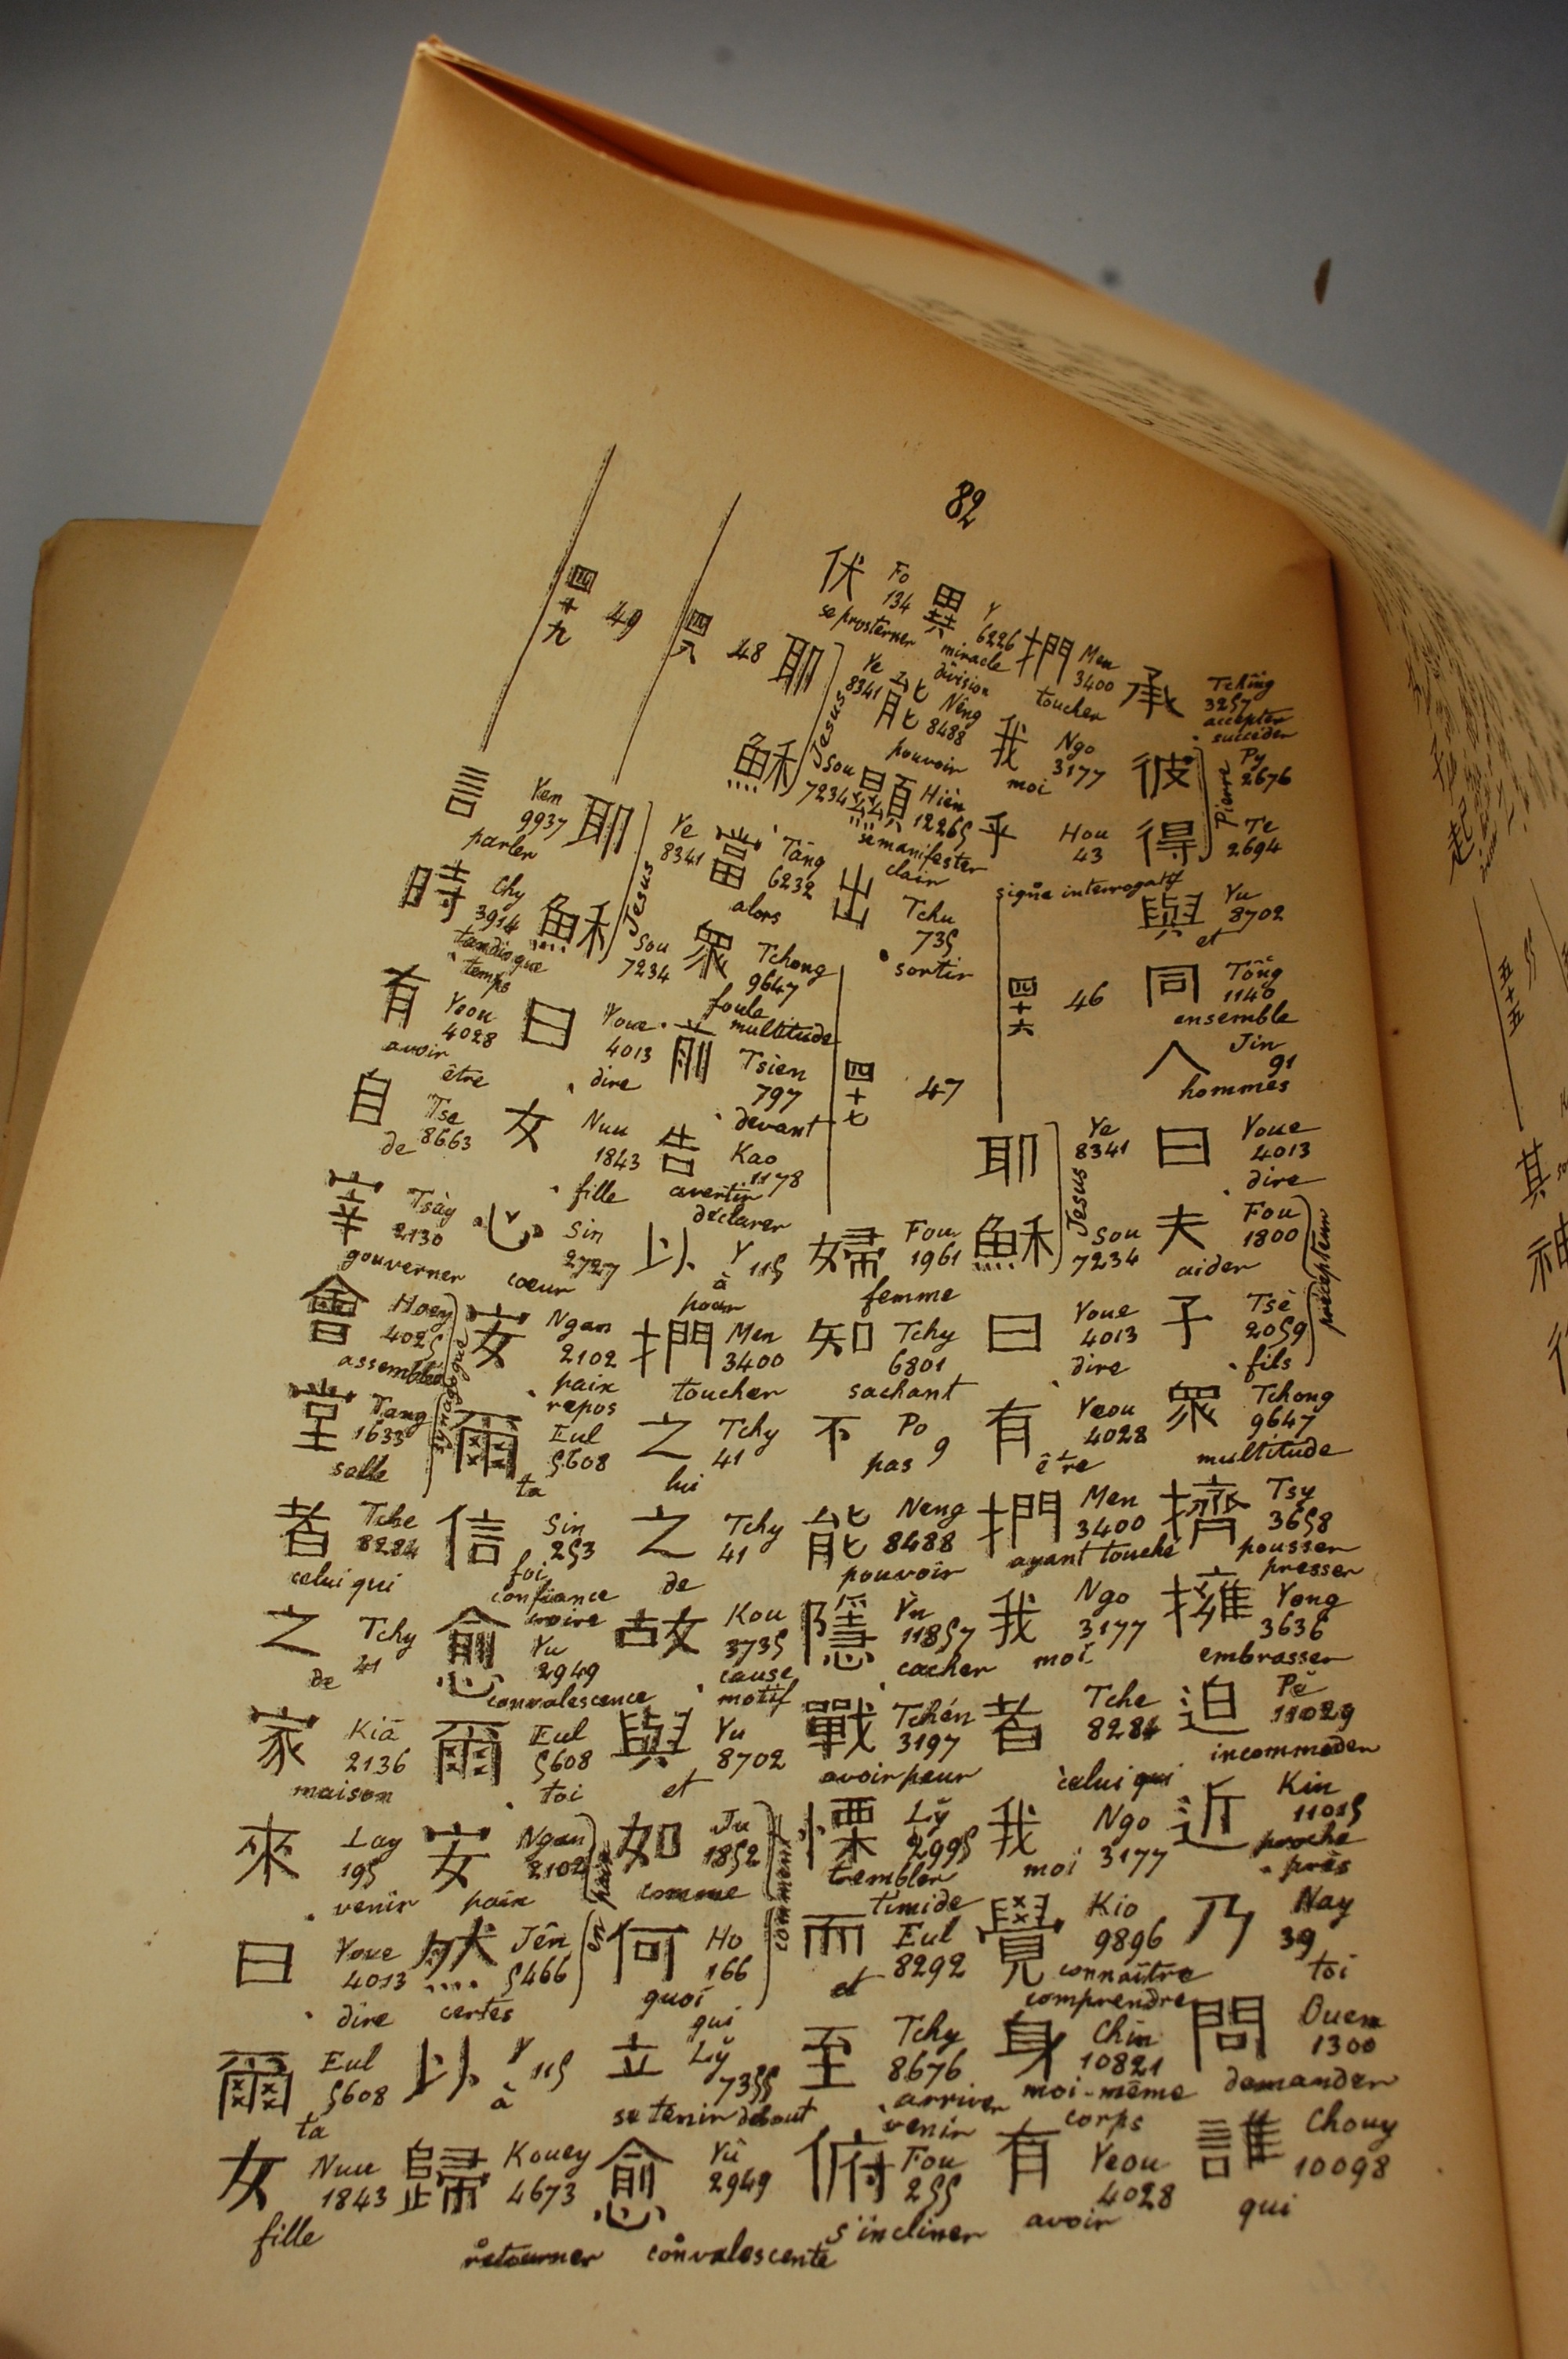 82
承 Tchîng 3257 accepter succéder
彼 Py 2676
得 Te 2694
Pierre
與 Yu 8702 et
同 Tông 1140 ensemble
人 Jin 91 hommes
曰 Youe 4013 dire
夫 Fou 1800 aider
子 Tsè 2059 fils
précepteur
衆 Tchong 9647 multitude
擠 Tsy 3658 pousser presser
擁 Yong 3636 embrasser
迫 Pě 11029 incommoder
近 Kin 11015 proche près
乃 Nay 39 toi
問 Ouen 1300 demander
誰 Chouy 10098 qui
捫 Men 3400 toucher
我 Ngo 3177 moi
乎 Hou 43 signe interrogatif
四十六 46
耶 Ye 8341
穌 Sou 7234
Jesus
曰 Youe 4013 dire
有 Yeou 4028 être
捫 Men 3400 ayant touché
我 Ngo 3177 moi
者 Tche 8284 celui qui
我 Ngo 3177 moi
覺 Kio 9896 connaître comprendre
身 Chin 10821 moi-même corps
有 Yeou 4028 avoir
異 Y 6226 miracle division
能 Nêng 8488 pouvoir
顯 Hièn 12265 se manifester clair
出 Tchu 735 sortir
四十七 47
婦 Fou 1961 femme
知 Tchy 6801 sachant
不 Po 9 pas
能 Neng 8488 pouvoir
隱 Yn 11857 cacher
戰 Tchén 3197 avoir peur
慄 Lў 2995 trembler timide
而 Eul 8292 et
至 Tchy 8676 arriver venir
俯 Fou 255 s'incliner
伏 Fo 134 se prosterner
耶 Ye 8341
穌 Sou 7234
Jesus
當 Tāng 6232 alors
衆 Tchong 9647 foule multitude
前 Tsièn 797 devant
告 Kao 1178 avertir déclarer
以 Y 115 à pour
捫 Men 3400 toucher
之 Tchy 41 lui
之 Tchy 41 de
故 Kou 3735 cause motif
與 Yu 8702 et
如 Ju 1852 comme
何 Ho 166 quoi qui
comment
立 Lў 7355 se tenir debout
愈 Yû 2949 convalescente
四八 48
耶 Ye 8341
穌 Sou 7234
Jesus
曰 Youe 4013 dire
女 Nuu 1843 fille
心 Sin 2727 cœur
安 Ngan 2102 paix repos
爾 Eul 5608 ta
信 Sin 253 foi confiance croire
愈 Yu 2949 convalescence
爾 Eul 5608 toi
安 Ngan 2102 paix
然 Jên 5466 certes
en paix
以 Y 115 à
歸 Kouey 4673 retourner
四十九 49
言 Yen 9937 parler
時 Chy 3914 tandis que temps
有 Yeou 4028 avoir être
自 Tse 8663 de
宰 Tsày 2130 gouverner
會 Hoey 4025 assemblée
堂 Tang 1633 salle
synagogue
者 Tche 8284 celui qui
之 Tchy 41 de
家 Kiā 2136 maison
來 Lay 195 venir
曰 Youe 4013 dire
爾 Eul 5608 ta
女 Nuu 1843 fille
五十五
其